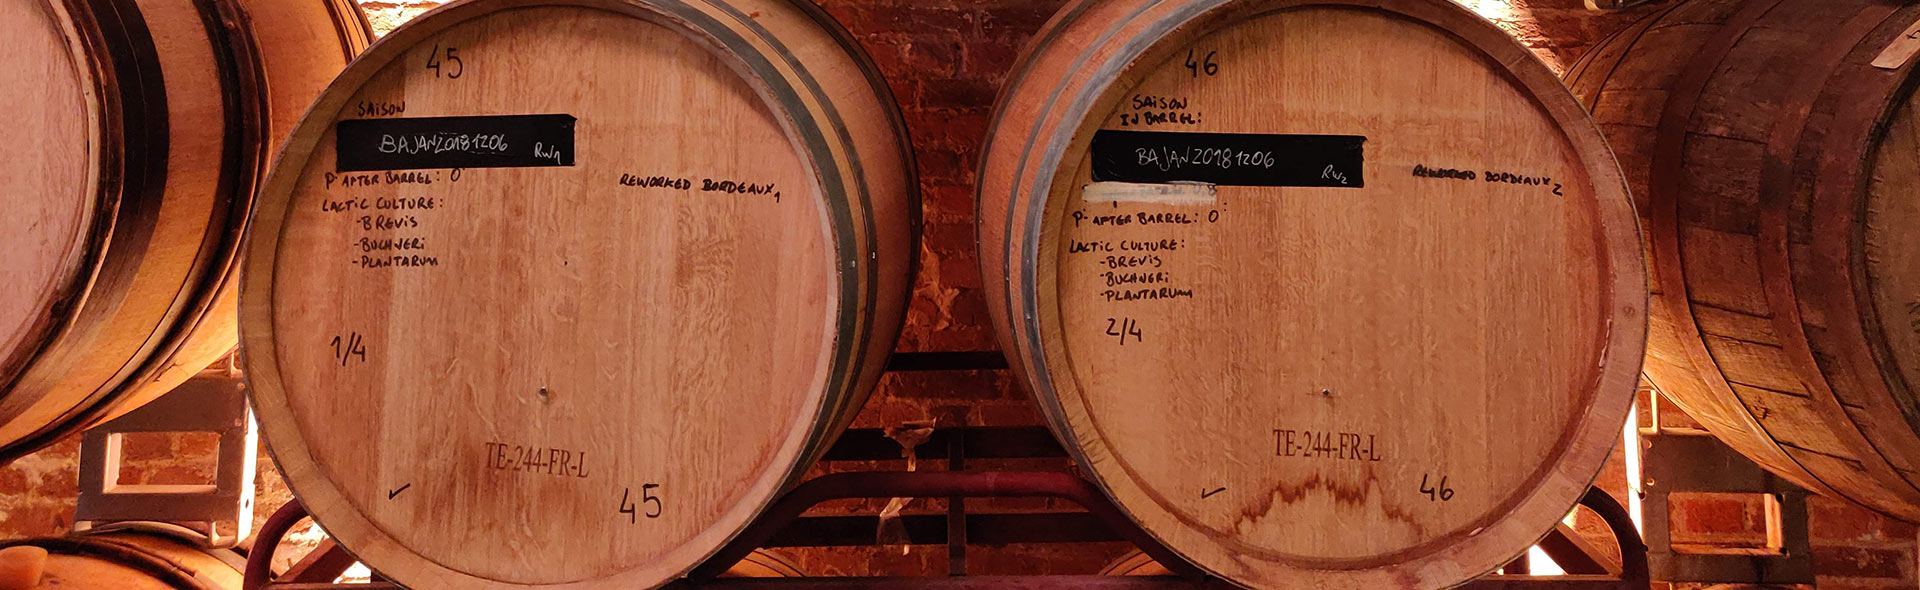 45
SAISON
BAJAN20181206 RW1
P° AFTER BARREL: 0°
REWORKED BORDEAUX 1
LACTIC CULTURE:
-BREVIS
-BUCHNERI
-PLANTARUM
1/4
TE-244-FR-L
45
46
SAISON
IN BARREL:
BAJAN20181206 RW2
REWORKED BORDEAUX 2
P° AFTER BARREL: 0°
LACTIC CULTURE:
-BREVIS
-BUCHNERI
-PLANTARUM
2/4
TE-244-FR-L
46